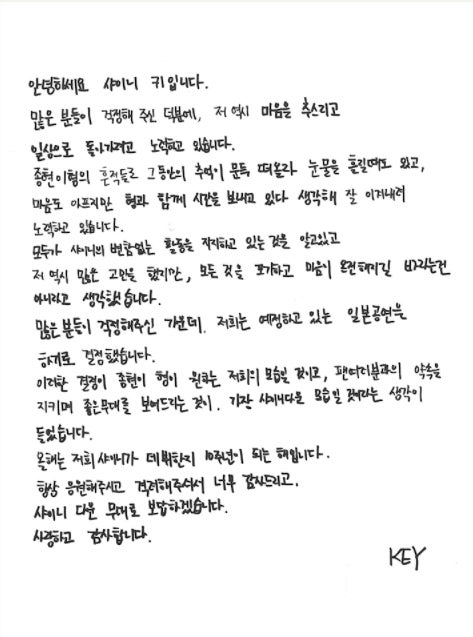 안녕하세요 샤이니 키입니다.
많은 분들이 걱정해 주신 덕분에, 저 역시 마음을 추스리고
일상으로 돌아가려고 노력하고 있습니다.
종현이형의 흔적들로 그동안의 추억이 문득 떠올라 눈물을 흘릴때도 있고,
마음도 아프지만 형과 함께 시간을 보내고 있다 생각해 잘 이겨내려
노력하고 있습니다.
모두가 샤이니의 변함없는 활동을 지지하고 있는 것을 알고있고
저 역시 많은 고민을 했지만, 모든 것을 포기하고 마음이 온전해지길 바라는건
아니라고 생각했습니다.
많은분들이 걱정해주신 가운데, 저희는 예정하고 있는 일본공연을
하기로 결정했습니다.
이러한 결정이 종현이 형이 원하는 저희의 모습일 것이고, 팬여러분과의 약속을
지키며 좋은무대를 보여드리는 것이, 가장 샤이니다운 모습일 것이라는 생각이
들었습니다.
올해는 저희 샤이니가 데뷔한지 10주년이 되는 해입니다.
항상 응원해주시고 격려해주셔서 너무 감사드리고,
샤이니 다운 무대로 보답하겠습니다.
사랑하고 감사합니다.
KEY